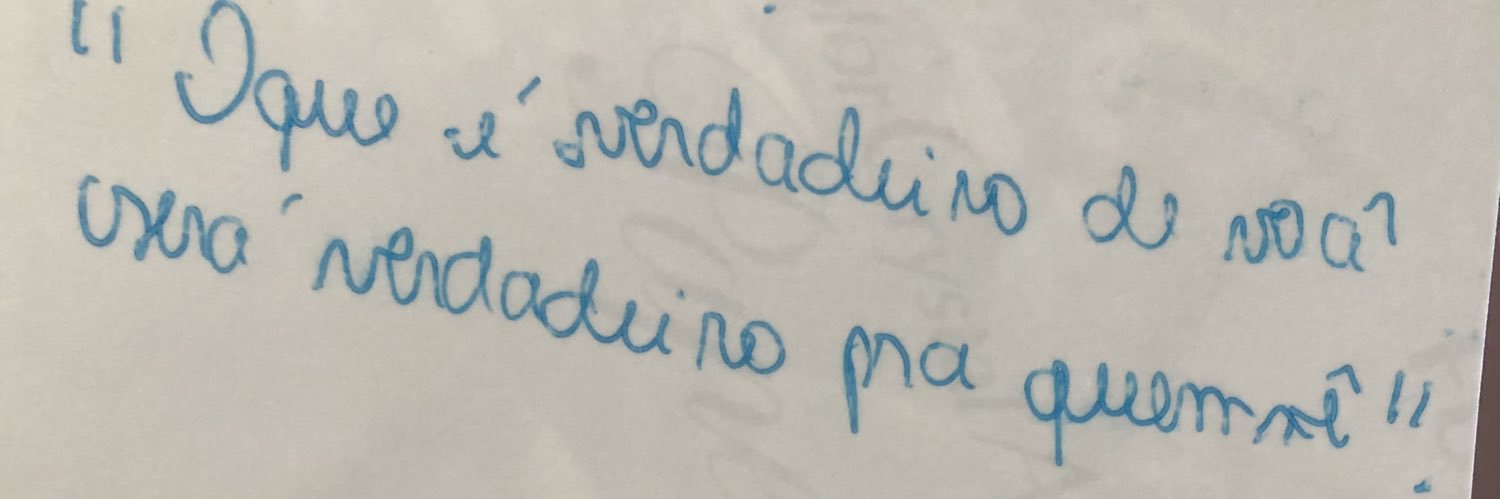 "O que é verdadeiro de você
será verdadeiro pra quem vê"